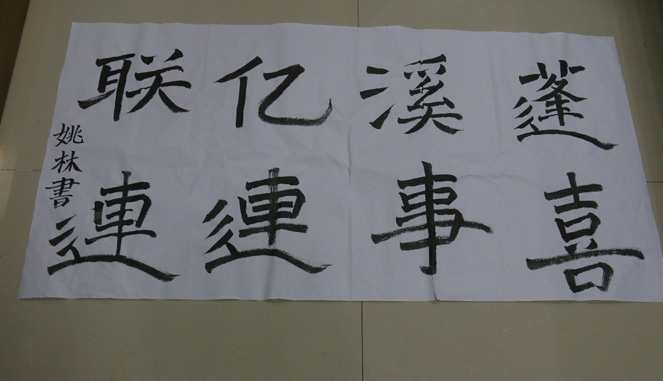 蓬溪亿联
喜事連連
姚林書